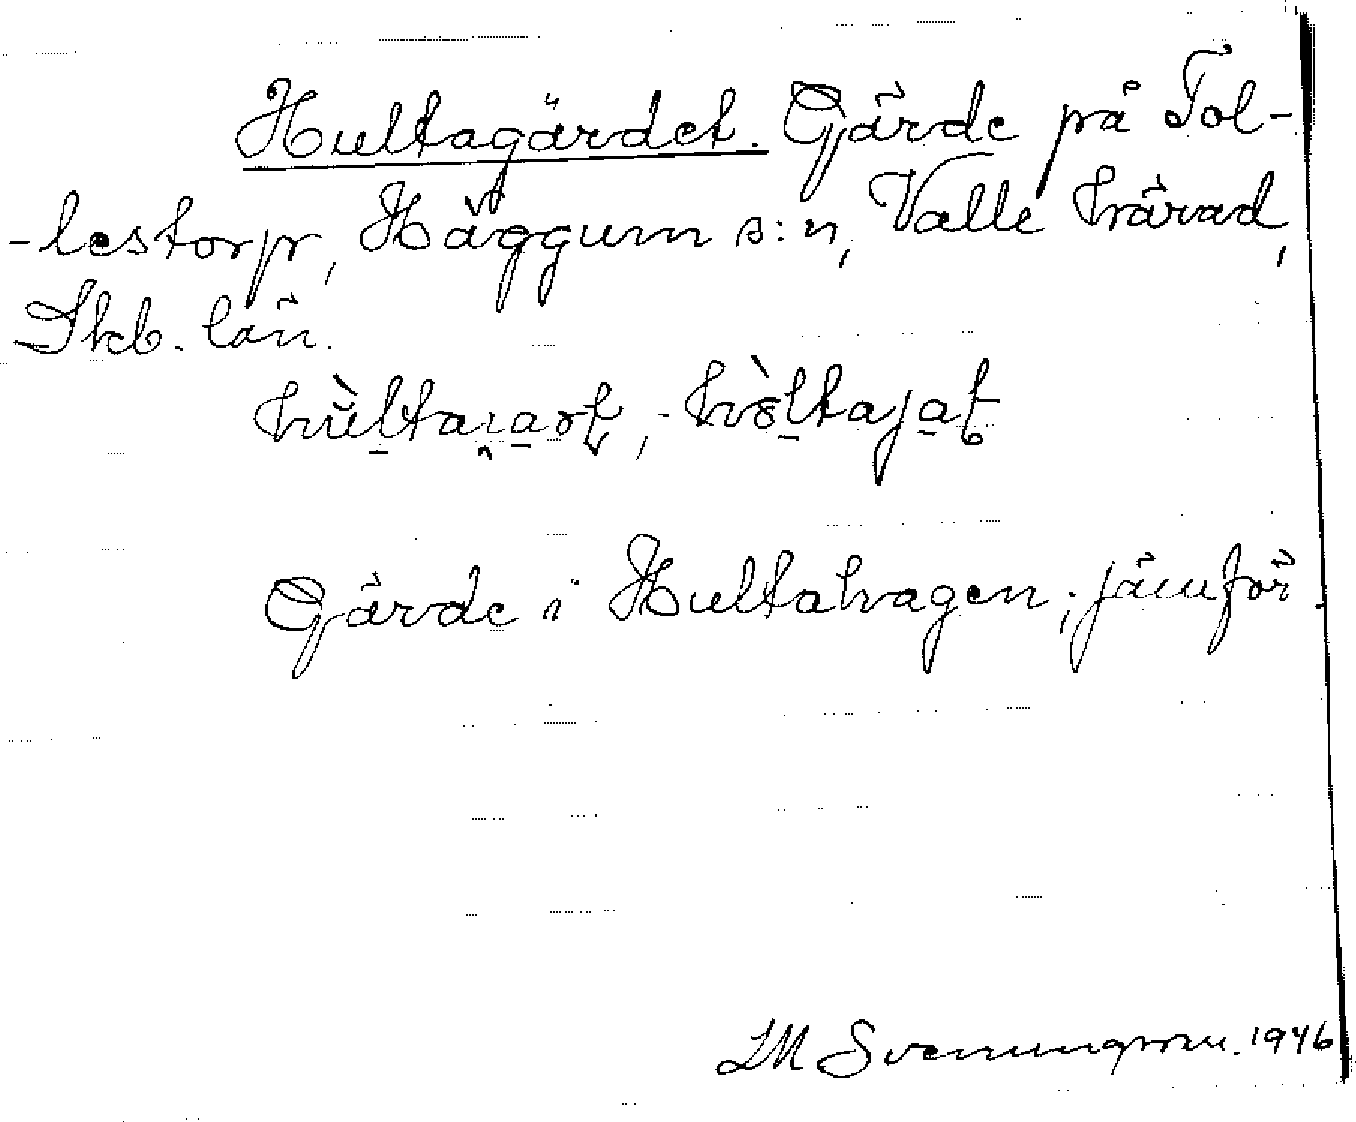 Hultagärdet. Gärde på Tol-
-lestorp, Häggum s:n, Valle härad,
Skb. län.
Gärde i Hultahagen; jämför
LM Svenungsson. 1946